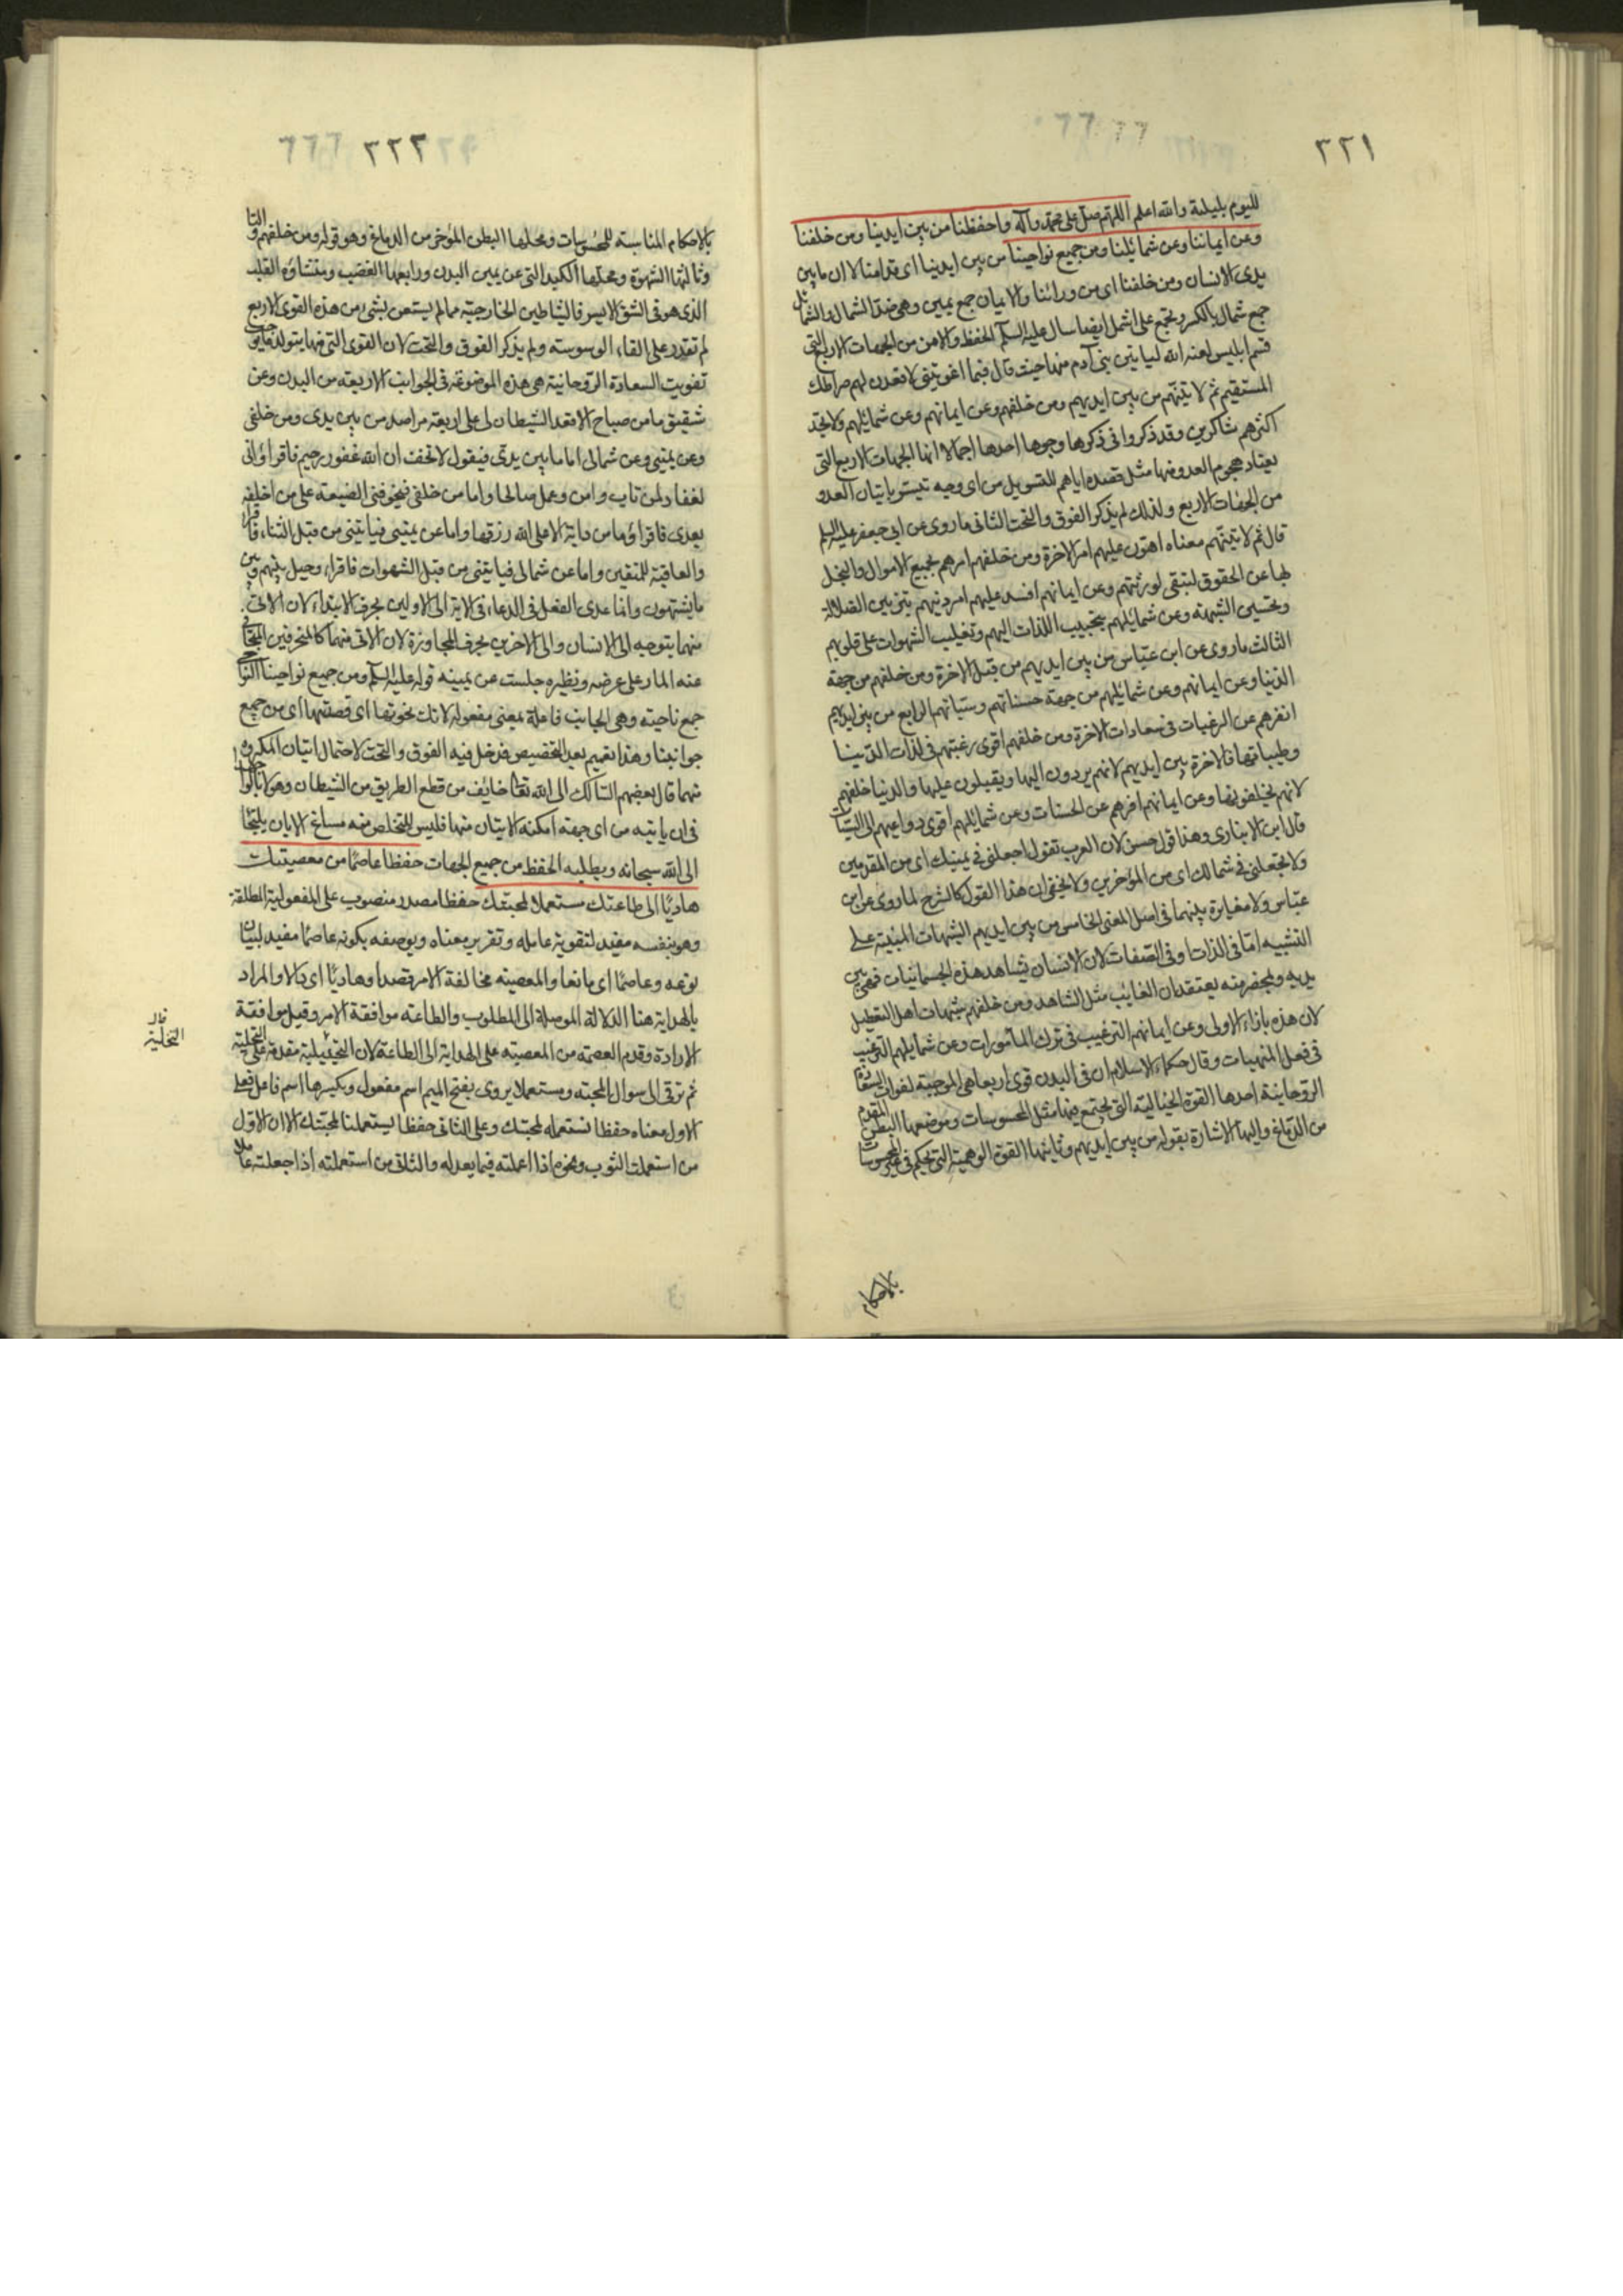 ٢٢١
لليوم بليلته والله اعلم اللهم صل على محمد وآله واحفظنا من بين ايدينا ومن خلفنا
وعن ايماننا وعن شمائلنا ومن جميع نواحينا من بين ايدينا اى قدامنا لان ما بين
يدى الانسان ومن خلفنا اى من ورائنا والايمان جمع يمين وهى ضد الشمال والشمائل
جمع شمال بالكسر ويجمع على اشمل ايضا سال عليه السلم الحفظ والامن من الجهات الاربع التى
قسم ابليس لعنه الله لياتين بنى آدم منها حيث قال فبما اغويتنى لاقعدن لهم صراطك
المستقيم ثم لاتينهم من بين ايديهم ومن خلفهم وعن ايمانهم وعن شمائلهم ولا تجد
اكثرهم شاكرين وقد ذكروا فى ذكرها وجوها احدها اجمالا انها الجهات الاربع التى
يعتاد هجوم العدو منها مثل قصده اياهم للتسويل من اى وجه تيسر باتيان العدو
من الجهات الاربع ولذلك لم يذكر الفوق والتحت الثانى ما روى عن ابى جعفر عليه السلم
قال ثم لاتينهم معناه اهون عليهم امر الاخرة ومن خلفهم امرهم بجمع الاموال والبخل
بها عن الحقوق لتبقى لورثتهم وعن ايمانهم افسد عليهم امر دينهم بتزيين الضلالة
وتحسين الشبهة وعن شمائلهم بتحبيب اللذات اليهم وتغليب الشهوات على قلوبهم
الثالث ما روى عن ابن عباس من بين ايديهم من قبل الاخرة ومن خلفهم من جهة
الدنيا وعن ايمانهم وعن شمائلهم من جهة حسناتهم وسيئاتهم الرابع من بين ايديهم
انفرهم عن الرغبات فى سعادات الاخرة ومن خلفهم اقوى رغبتهم فى لذات الدنيا
وطيباتها فالاخرة بين ايديهم لانهم يردون اليها ويقبلون عليها والدنيا خلفهم
لانهم يخلفونها وعن ايمانهم افرهم عن الحسنات وعن شمائلهم اقوى دواعيهم الى السيئات
قال ابن الانبارى وهذا قول حسن لان العرب تقول اجعلنى فى يمينك اى من المقدمين
ولا تجعلنى فى شمالك اى من المؤخرين ولا يخفى ان هذا القول كالشرح لما روى عن ابن
عباس ولا مغايرة بينهما فى اصل المعنى الخامس من بين ايديهم الشبهات المبنية على
التشبيه اما فى الذات او فى الصفات لان الانسان يشاهد هذه الجسمانيات فهى بين
يديه وبحضرته يعتقد ان الغايب مثل الشاهد ومن خلفهم شبهات اهل التعطيل
لان هذه بازاء الاولى وعن ايمانهم الترغيب فى ترك المأمورات وعن شمايلهم الترغيب
فى فعل المنهيات وقال حكماء الاسلام ان فى البدن قوى اربعا هى الموجبة لفوات السعادة
الروحانية احدها القوة الخيالية التى يجتمع فيها مثل المحسوسات وموضعها البطن المقدم
من الدماغ واليها الاشارة بقوله من بين ايديهم وثانيها القوة الوهمية التى تحكم فى غير المحسوسات
بالاحكام
٢٢٢
بالاحكام المناسبة للمحسوسات ومحلها البطن المؤخر من الدماغ وهو قوله ومن خلفهم
وثالثها الشهوة ومحلها الكبد التى عن يمين البدن ورابعها الغضب ومنشاؤه القلب
الذى هو فى الشق الايسر فالشياطين الخارجية ما لم يستعن بشىء من هذه القوى الاربع
لم تقدر على القاء الوسوسة ولم يذكر الفوق والتحت لان القوى التى منها يتولد ما يوجب
تفويت السعادة الروحانية هى هذه الموضوعة فى الجوانب الاربعة من البدن وعن
شقيق ما من صباح الا قعد الشيطان لى على اربعة مراصد من بين يدى ومن خلفى
وعن يمينى وعن شمالى اما ما بين يدى فيقول لا تخف ان الله غفور رحيم فاقرا وانى
لغفار لمن تاب وامن وعمل صالحا واما من خلفى فيخوفنى الضيعة على من اخلفه
بعدى فاقرا وما من دابة الا على الله رزقها واما عن يمينى فياتينى من قبل الثناء فاقرا
والعاقبة للمتقين واما عن شمالى فياتينى من قبل الشهوات فاقراء وحيل بينهم وبين
ما يشتهون وانما عدى الفعل فى الدعاء فى الاية الى الاولين بحرف الابتداء لان الاتى
منهما يتوجه الى الانسان والى الاخرين بحرف المجاوزة لان الاتى منهما كالمنحرفين
عنه المار على عرضه ونظيره جلست عن يمينه قوله عليه السلم ومن جميع نواحينا النواحى
جمع ناحية وهى الجانب فاعلة بمعنى مفعولة لانك نحوتها اى قصدتها اى من جميع
جوانبنا وهذا تعميم بعد التخصيص فدخل فيه الفوق والتحت لاحتمال اتيان المكروه
منهما قال بعضهم السالك الى الله تعالى خائف من قطع الطريق من الشيطان وهو لا
فى ان ياتيه من اى جهة امكنه الاتيان منها فليس للتخلص منه مساغ الا بان يلتجئ
الى الله سبحانه ويطلب الحفظ من جميع الجهات حفظا عاصما من معصيتك
هاديا الى طاعتك مستعملا لمحبتك حفظا مصدر منصوب على المفعولية المطلقة
وهو بنفسه مفيد لتقوية عامله وتقرير معناه وبوصفه بكونه عاصما مفيد لبيان
نوعه وعاصما اى مانعا والمعصية مخالفة الامر قصدا وهاديا اى دالا والمراد
بالهداية هنا الدلالة الموصلة الى المطلوب والطاعة موافقة الامر وقيل موافقة
الارادة وقدم العصمة من المعصية على الهداية الى الطاعة لان مقدمة على التحلية
التخلية
ثم ترقى الى سوال المحبة ومستعملا يروى بفتح الميم اسم مفعول وبكسرها اسم فاعل فعلى
الاول معناه حفظا نستعمله لمحبتك وعلى الثانى حفظا يستعملنا لمحبتك الا ان الاول
من استعملت الثوب ونحوه اذا اعملته فيما يعد له والثانى من استعملته اذا جعلته عاملا